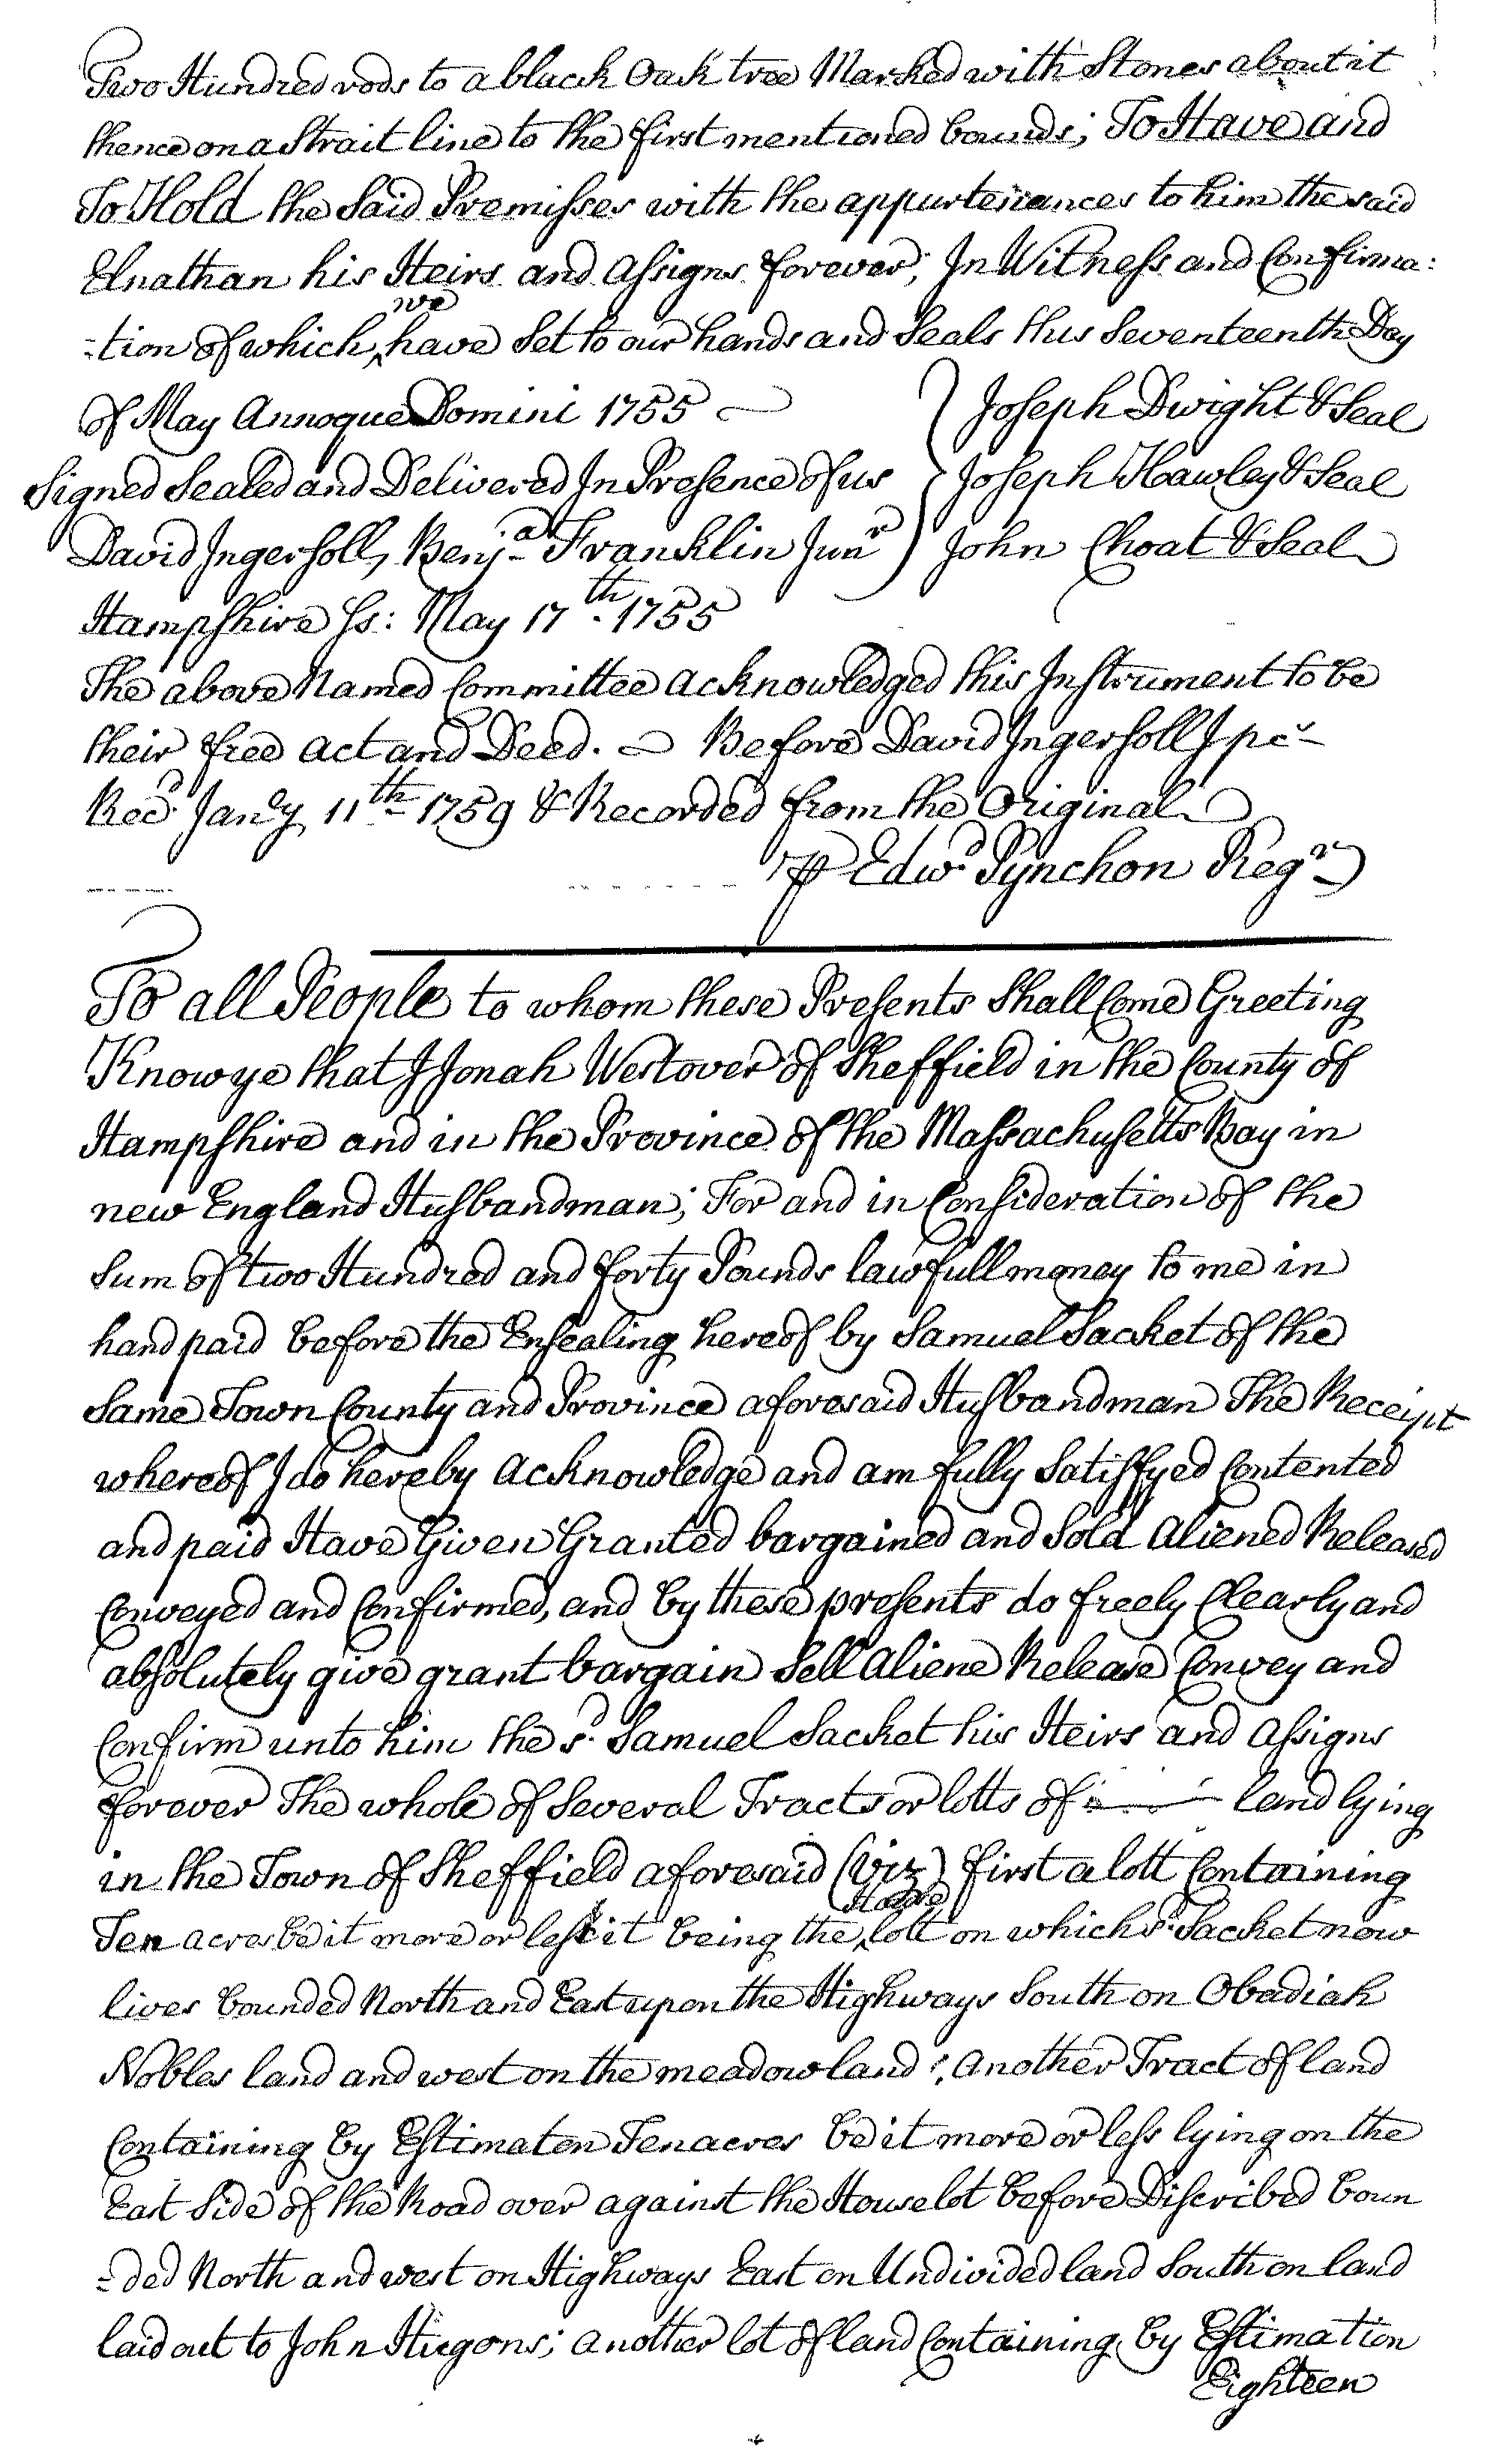 Two Hundred rods to a black Oack tree Marked with Stones about it
thence on a Strait line to the first mentioned bounds; To Have and
To Hold the Said Premisses with the appurtenances to him the said
Elnathan his Heirs and Assigns forever; In Witness and Confirma:
we
-tion of which ^ have Set to our hands and Seals this Seventeenth Day
of May Annoque Domini 1755 Joseph Dwight & Seal
Signed Sealed and Delivered In Presence of us Joseph Hawley & Seal
David Ingersoll, Benja Franklin Junr John Choat & Seal
Hampshire Ss: May 17th. 1755
The above Named Committee acknowledged this Instrument to be
their free act and Deed. Before David Ingersoll J pcs
Recd Jany 11th 1759 & Recorded from the Original
⅌ Edwd Pynchon Regr
To all People to whom these Presents Shall Come Greeting
Know ye that I Jonah Westover of Sheffield in the County of
Hampshire and in the Province of the Massachusetts Bay in
new England Husbandman; For and in Consideration of the
Sum of two Hundred and forty Pounds lawfull money to me in
hand paid before the Ensealing hereof by Samuel Sacket of the
Same Town County and Province aforesaid Husbandman The Receipt
whereof I do hereby acknowledge and am fully Satisfyed Contented
and paid Have Given Granted bargained and Sold Aliened Released
Conveyed and Confirmed, and by these presents do freely Clearly and
absolutely give grant bargain Sell Aliene Release Convey and
Confirm unto him the sd. Samuel Sacket his Heirs and Assigns
forever The whole of Several Tracts or lotts of land lying
in the Town of Sheffield aforesaid (Viz) first a lott Containing
Home
Ten acres be it more or less it being the ^ lott on which sd. Sacket now
lives bounded North and East upon the Highways South on Obadiah
Nobles land and west on the meadow land; Another Tract of land
Containing by Estimaton Ten acres be it more or less lying on the
East Side of the Road over against the House lot before Discribed boun
-ded North and west on Highways East on Undivided land South on land
laid out to John Hugons; another lot of land Containing by Estimation
Eighteen